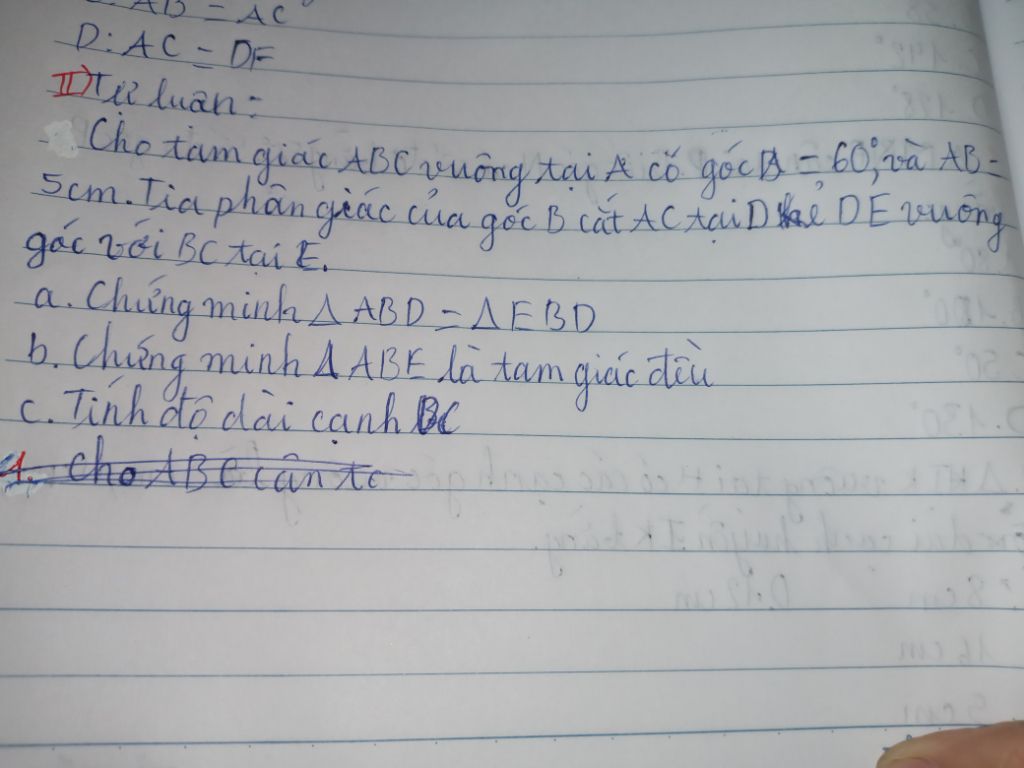 AB = AC
D: AC = DF
II) Tự luận:
Cho tam giác ABC vuông tại A có góc B = 60°, và AB =
5cm. Tia phân giác của góc B cắt AC tại D kẻ DE vuông
góc với BC tại E.
a. Chứng minh Δ ABD = Δ EBD
b. Chứng minh Δ ABE là tam giác đều
c. Tính độ dài cạnh BC
1. Cho ABC cân tạ